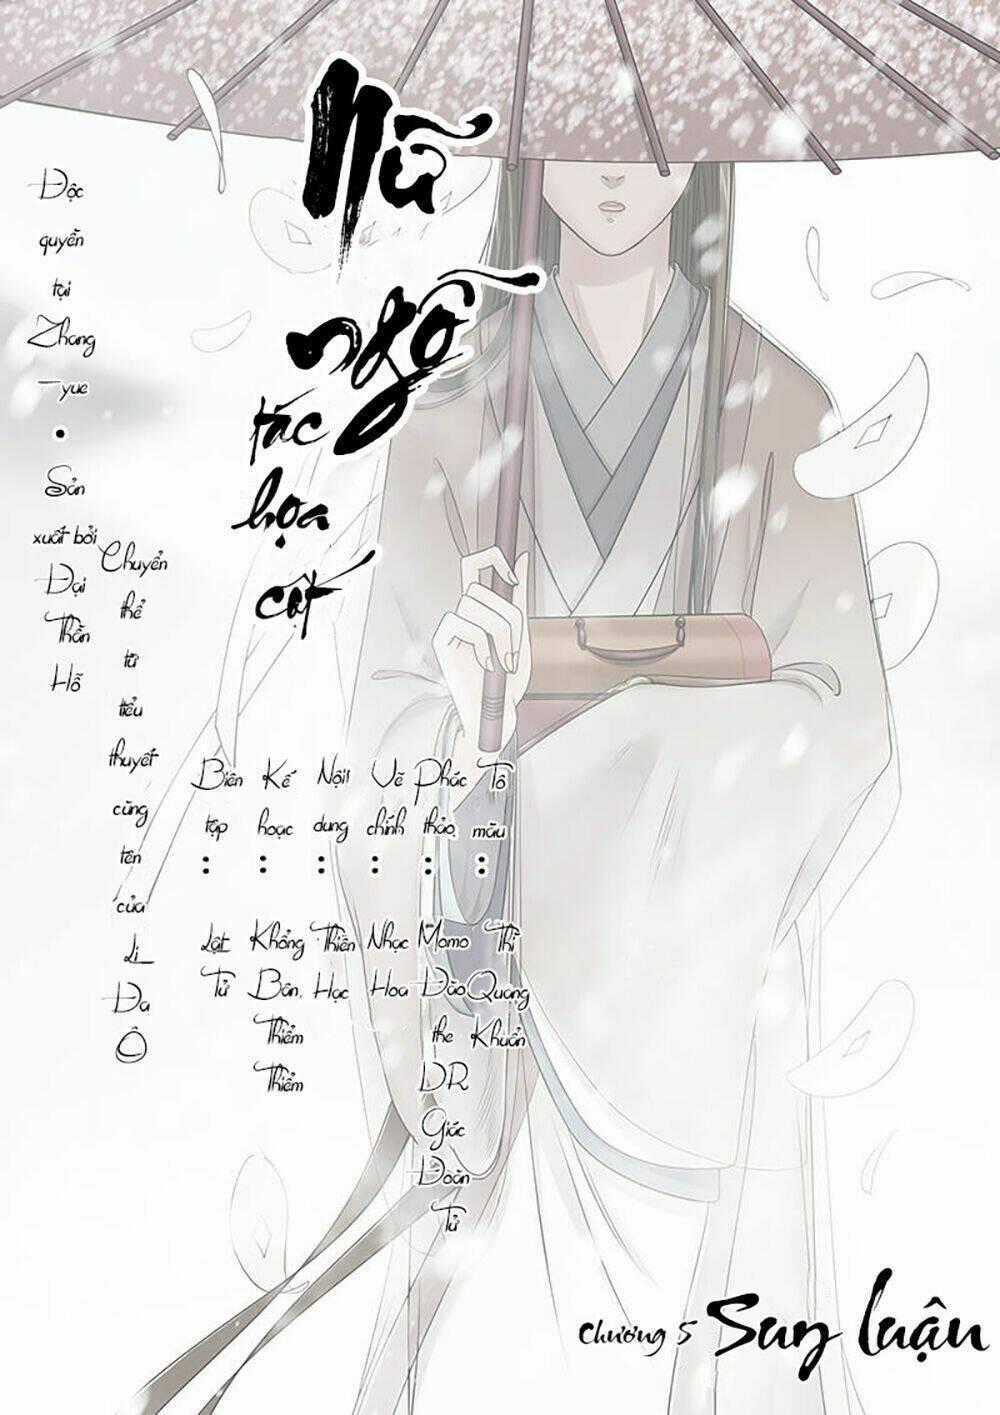 Nữ
ngỗ
tác
họa
cốt
Độc
quyền
tại
Zhang
-yue
•
Sản
xuất bởi
Đại
Thần
Hỗ
Chuyển
thể
từ
tiểu
thuyết
cùng
tên
của
Li
Đa
Ô
Biên tập : Lật Tử
Kế hoạc : Khổng Bân, Thiểm Thiểm
Nội dung : Thiền Hạc
Vẽ chính : Nhạc Hoa
Phác thảo : Momo Đào the DR Giác Đoàn Tử
Tô màu : Thì Quang Khuẩn
Chương 5 Suy luận